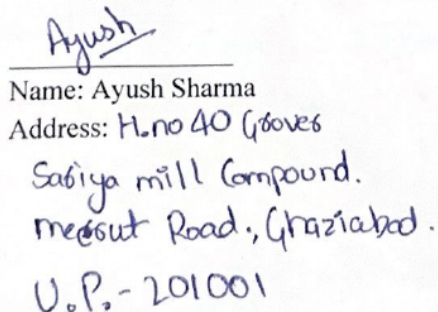 Ayush
Name: Ayush Sharma
Address: H.no 40 Grover
Sariya mill Compound.
meerut Road., Ghaziabad.
U.P.- 201001